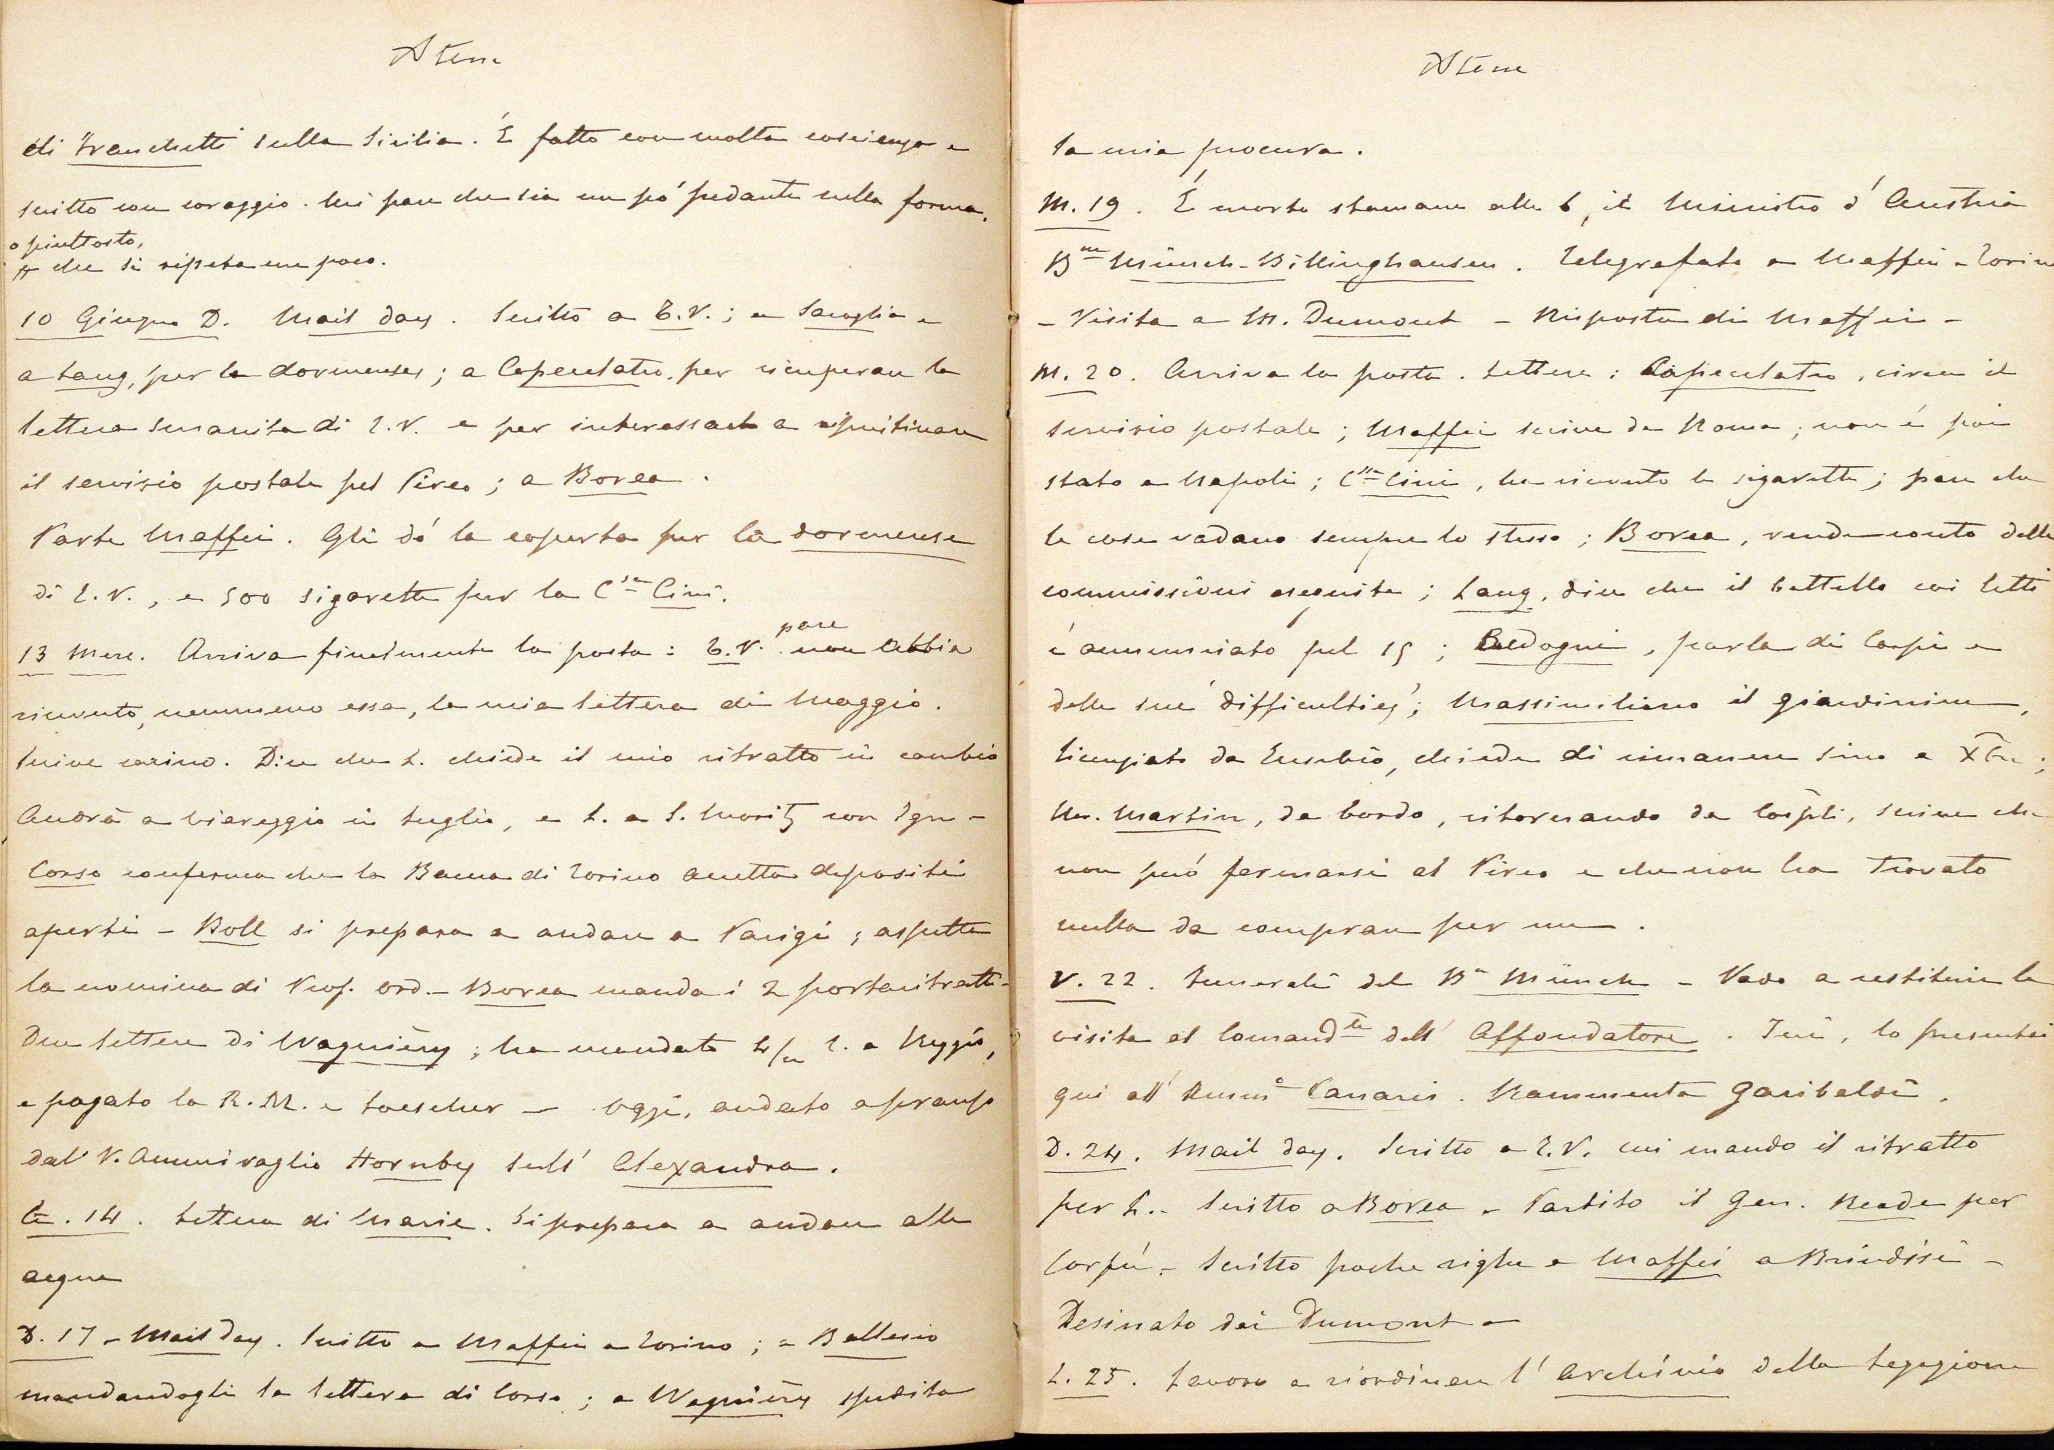 Atene
di Franchetti sulla Sicilia. È fatto con molta coscienza e
scritto con coraggio. Mi pare che sia un pó pedante nella forma,
o piuttosto,
che si ripeta un poco.
10 Giugno D. Mail day. Scritto a E.V.; a Saroglia e
a Lang, per le dormeuses; a Capentato, per ricuperare la
lettera smarrita di E.V. e per interessarlo a ripristinare
il servizio postale pel Pireo; a Borea.
Parte Maffei. Gli dó la coperta per la dormeuse
di E.V., e 500 sigarette per la Cssa Cini.
pare
13 Merc. Arriva finalmente la posta: E.V. non abbia
ricevuto, nemmeno essa, la mia lettera di Maggio.
Scrive carino. Dice che L. chiede il mio ritratto in cambio
Andrà a Viareggio in Luglio, e L. a S. Moritz con Ign -
Corso conferma che la Banca di Torino accetta depositi
aperti - Boll si prepara a andare a Parigi; aspetta
la nomina di Prof. ord. - Borea manda i 2 portaritratti -
Due lettere di Wagnière; ha mandato 4/m L. a Reggio,
e pagato la R.M. e Loescher - Oggi, andato a pranzo
dal V. Ammiraglio Hornby sull' Alexandra.
G. 14. Lettera di Marie. Si prepara a andare alle
acque
D. 17 - Mail day. Scritto a Maffei a Torino; a Ballesio
mandandogli la lettera di Corso; a Wagnière spedita
Atene
la mia procura.
M. 19. È morto stamane alle 6, il Ministro d' Austria
Bne Münch-Billinghausen. Telegrafato a Maffei a Torino
- Visita a M. Dumont - Risposta di Maffei -
M. 20. Arriva la posta. Lettere: Capentato, circa il
servizio postale; Maffei scrive da Roma; non é poi
stato a Napoli; Cssa Cini, ha ricevuto le sigarette; pare che
le cose vadano sempre lo stesso; Borea, rende conto delle
commissioni eseguite; Lang, dice che il battello coi letti
é annunciato pel 15; Bedogni, parla di Carpi e
delle sue 'difficulties'; Massimiliano il giardiniere,
licenziato da Eusebio, chiede di rimanere sino a Xbre;
Mr. Martin, da bordo, ritornando da Cospli, scrive che
non può fermarsi al Pireo e che non ha trovato
nulla da comprare per me.
V. 22. Funerali del Bne Münch - Vado a restituire la
visita al Comandte dell' Affondatore. Ieri, lo presentai
qui all' Ammo Canaris. Rammenta Garibaldi.
D. 24. Mail day. Scritto a E.V. cui mando il ritratto
per L. - Scritto a Borea - Partito il Gen. Reade per
Corfú - Scritto poche righe a Maffei a Brindisi -
Desinato dai Dumont -
L. 25. Lavoro a riordinare l' Archivio della Legazione